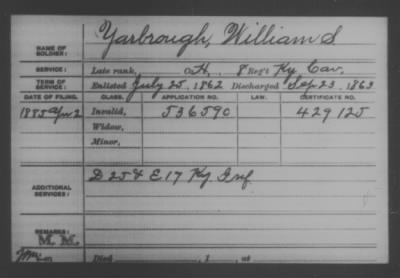 Yarbrough, William S
NAME OF SOLDIER:
SERVICE: Late rank, Co H, 8 Reg't Ky Cav.
TERM OF SERVICE: Enlisted July 25, 1862 Discharged Sep 23, 1863
DATE OF FILING. CLASS. APPLICATION NO. LAW. CERTIFICATE NO.
1885 Apr 2 Invalid, 536590 429125
Widow,
Minor,
ADDITIONAL SERVICES: D 25 & E 17 Ky Inf
REMARKS:
M. M.
Died , 1 , at